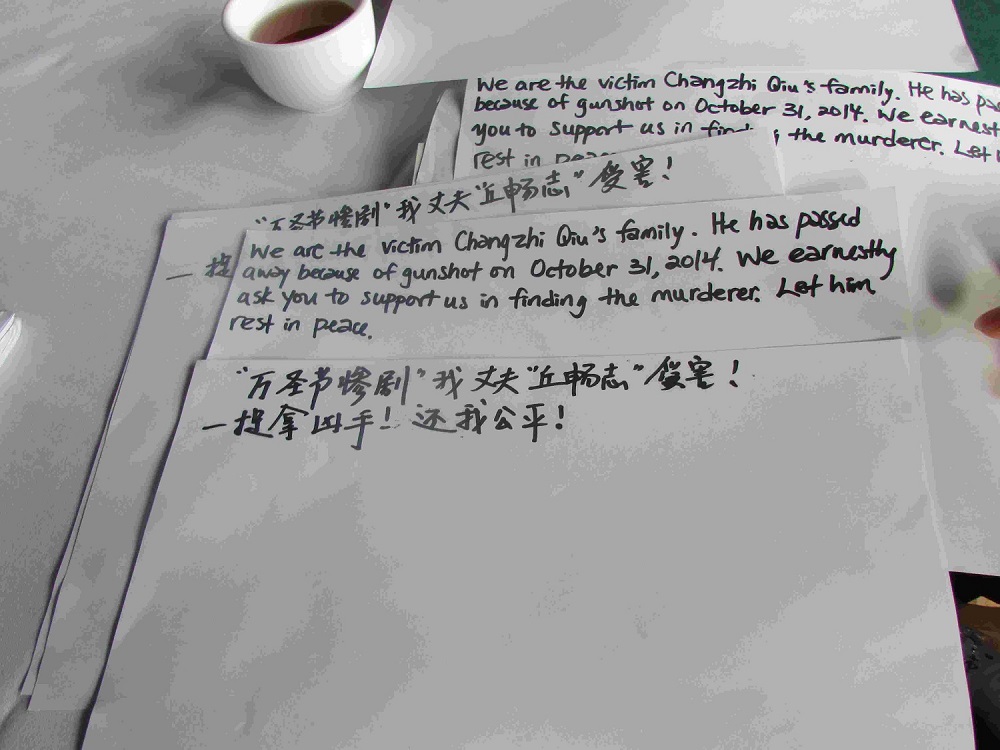 We are the victim Changzhi Qiu's family. He has
because of gunshot on October 31, 2014. We
you to support us in the murderer. Let
rest in peace
"万圣节惨剧"我丈夫"丘畅志"害!
—捉
We are the victim Changzhi Qiu's family. He has passed
away because of gunshot on October 31, 2014. We earnestly
ask you to support us in finding the murderer. Let him
rest in peace.
"万圣节惨剧"我丈夫"丘畅志"害!
—捉拿凶手! 还我公平!